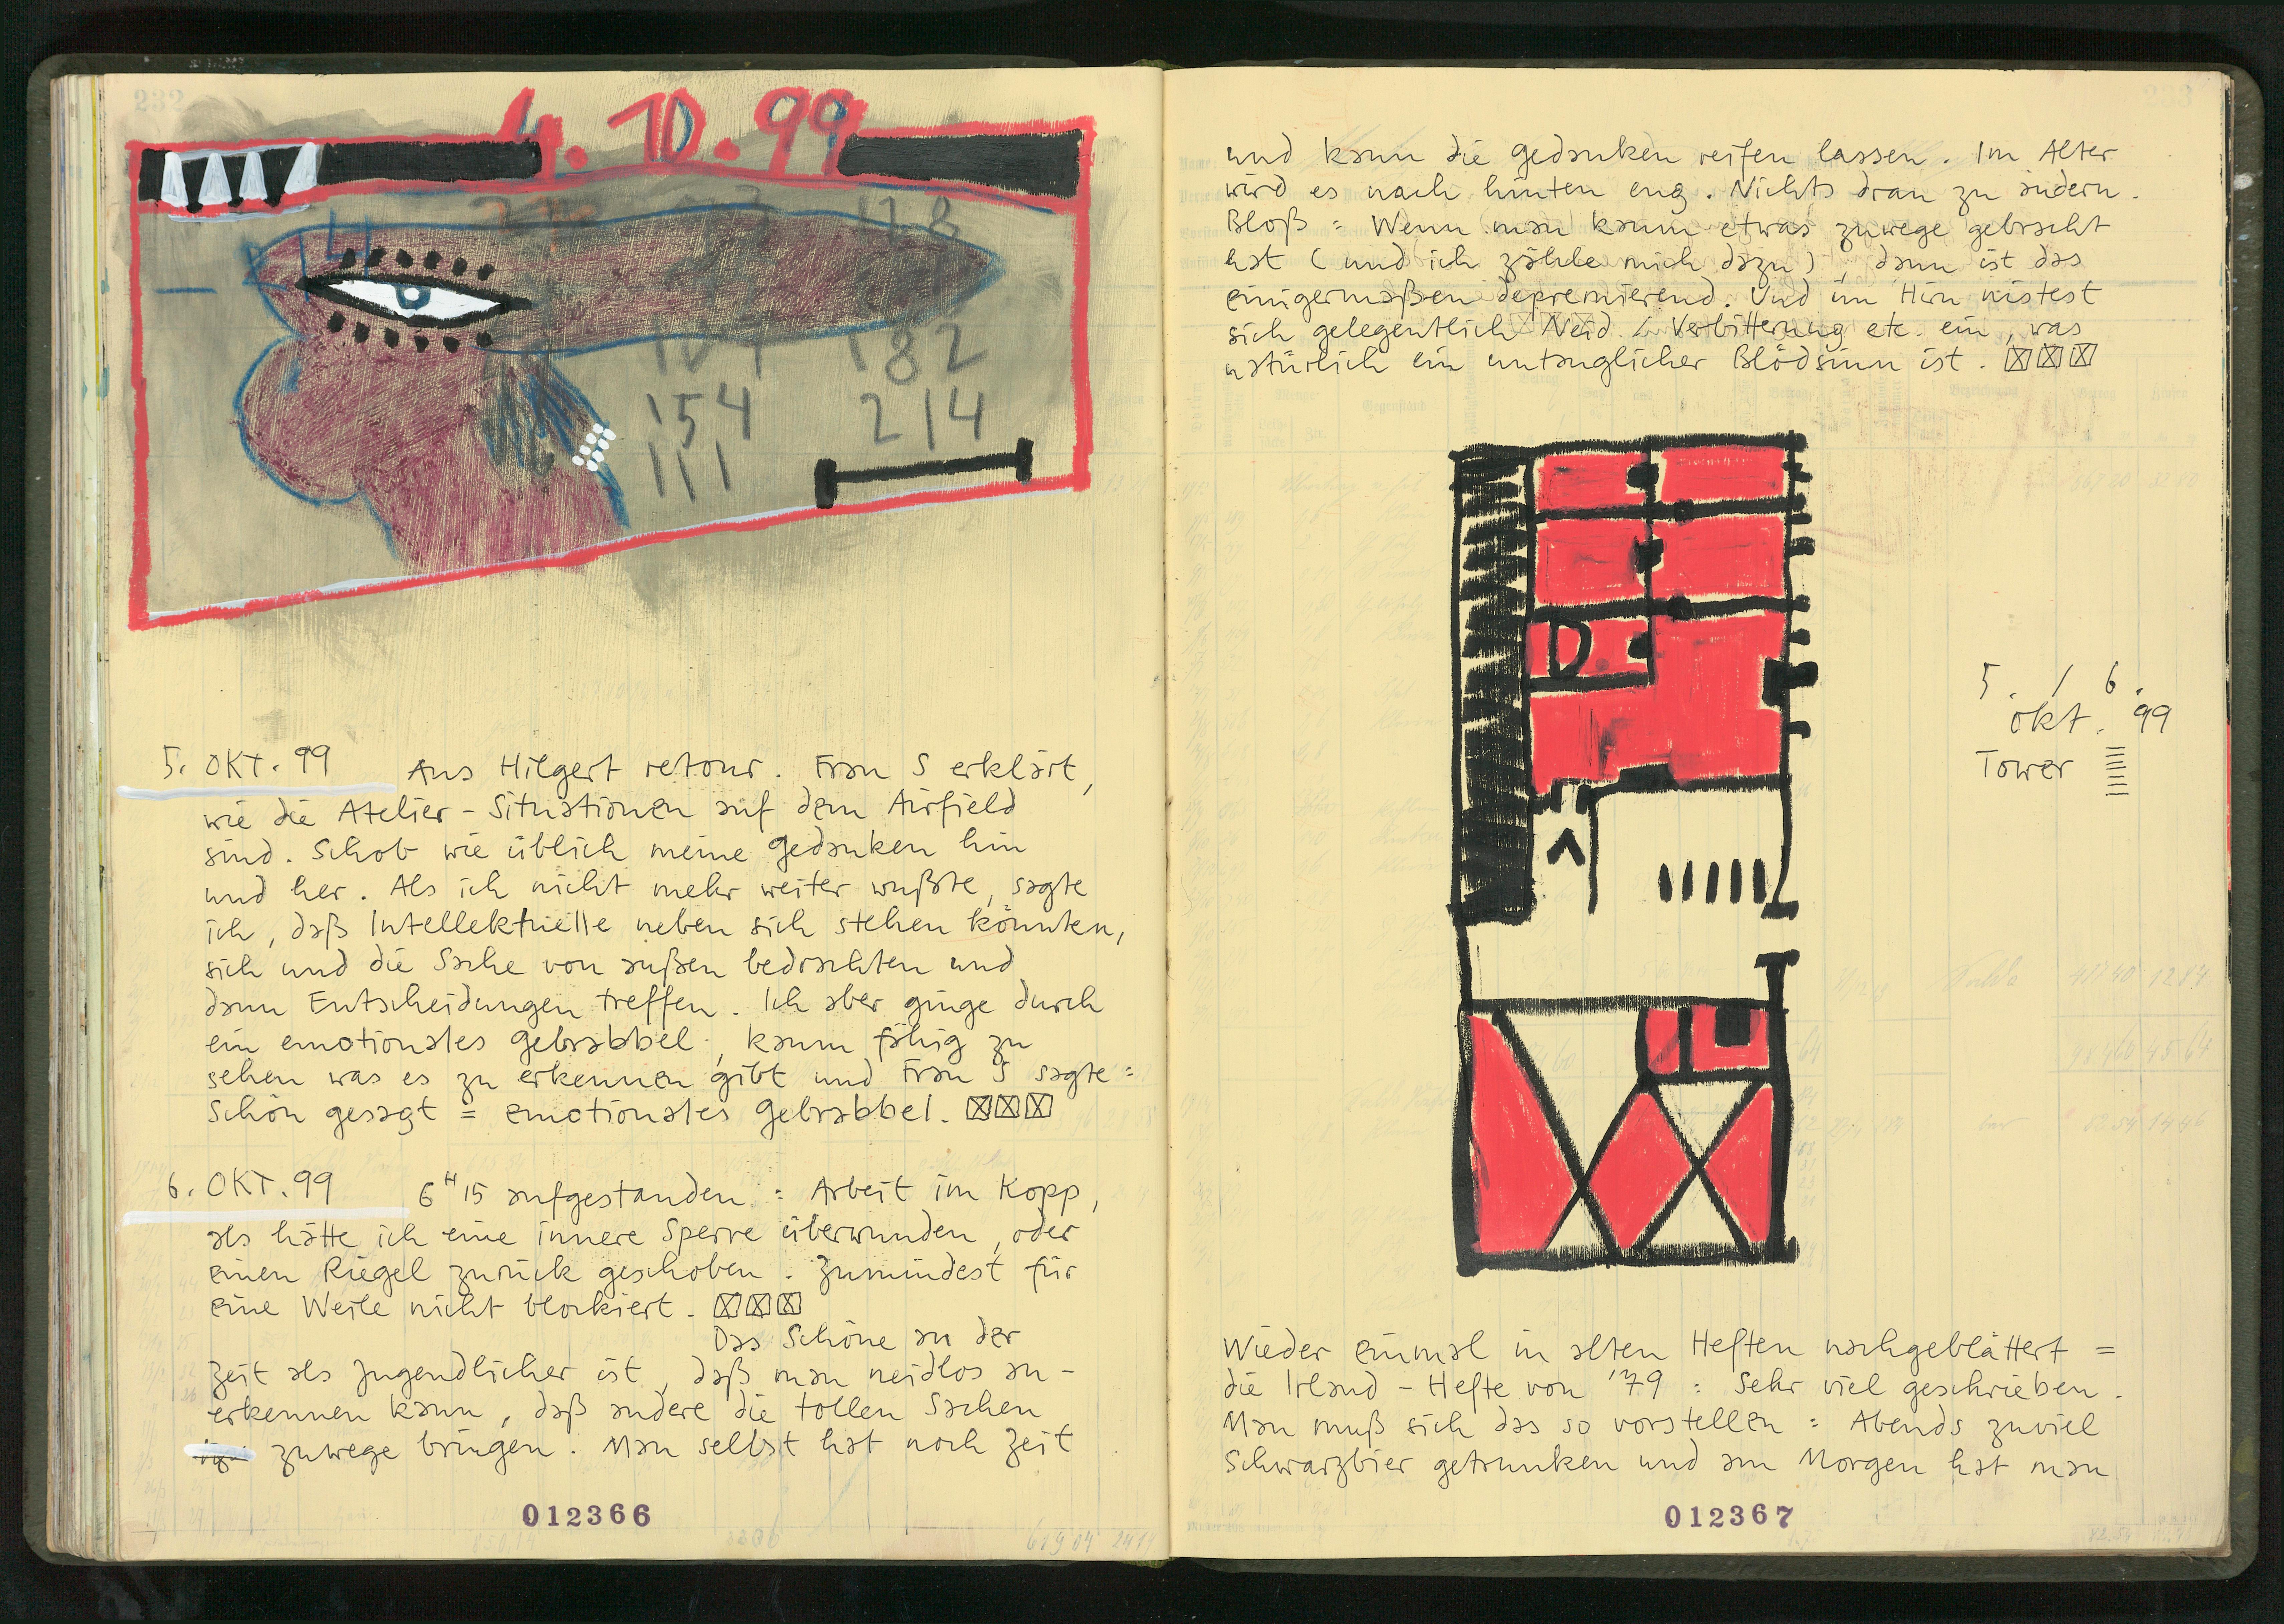 232
4.10.99
14
128
107 182
154 214
111
5. OKT. 99 Aus Hilgert retour. Frau S erklärt,
wie die Atelier-Situationen auf dem Airfield
sind. Schob wie üblich meine Gedanken hin
und her. Als ich nicht mehr weiter wußte, sagte
ich, daß Intellektuelle neben sich stehen könnten,
sich und die Sache von außen bedrachten und
dann Entscheidungen treffen. Ich aber ginge durch
ein emotionales Gebrabbel, kaum fähig zu
sehen was es zu erkennen gibt und Frau S sagte:
Schön gesagt = emotionales Gebrabbel.
6. OKT. 99 6H15 aufgestanden: Arbeit im Kopp,
als hätte ich eine innere Sperre überwunden, oder
einen Riegel zurück geschoben. Zumindest für
eine Weile nicht blockiert.
Das Schöne an der
Zeit als Jugendlicher ist, daß man neidlos an-
erkennen kann, daß andere die tollen Sachen
zuwege bringen. Man selbst hat noch Zeit
012366
und kann die Gedanken reifen lassen. Im Alter
wird es nach hinten eng. Nichts dran zu ändern.
Bloß: Wenn man kaum etwas zuwege gebracht
hat (und ich zähle mich dazu), dann ist das
einigermaßen depremierend. Und im Hirn nistest
sich gelegentlich Neid / Verbitterung etc. ein, was
natürlich ein untauglicher Blödsinn ist.
D
5. / 6.
Okt. 99
Tower
Wieder einmal in alten Heften nachgeblättert =
die Irland-Hefte von '79: Sehr viel geschrieben.
Man muß sich das so vorstellen: Abends zuviel
Schwarzbier getrunken und am Morgen hat man
012367